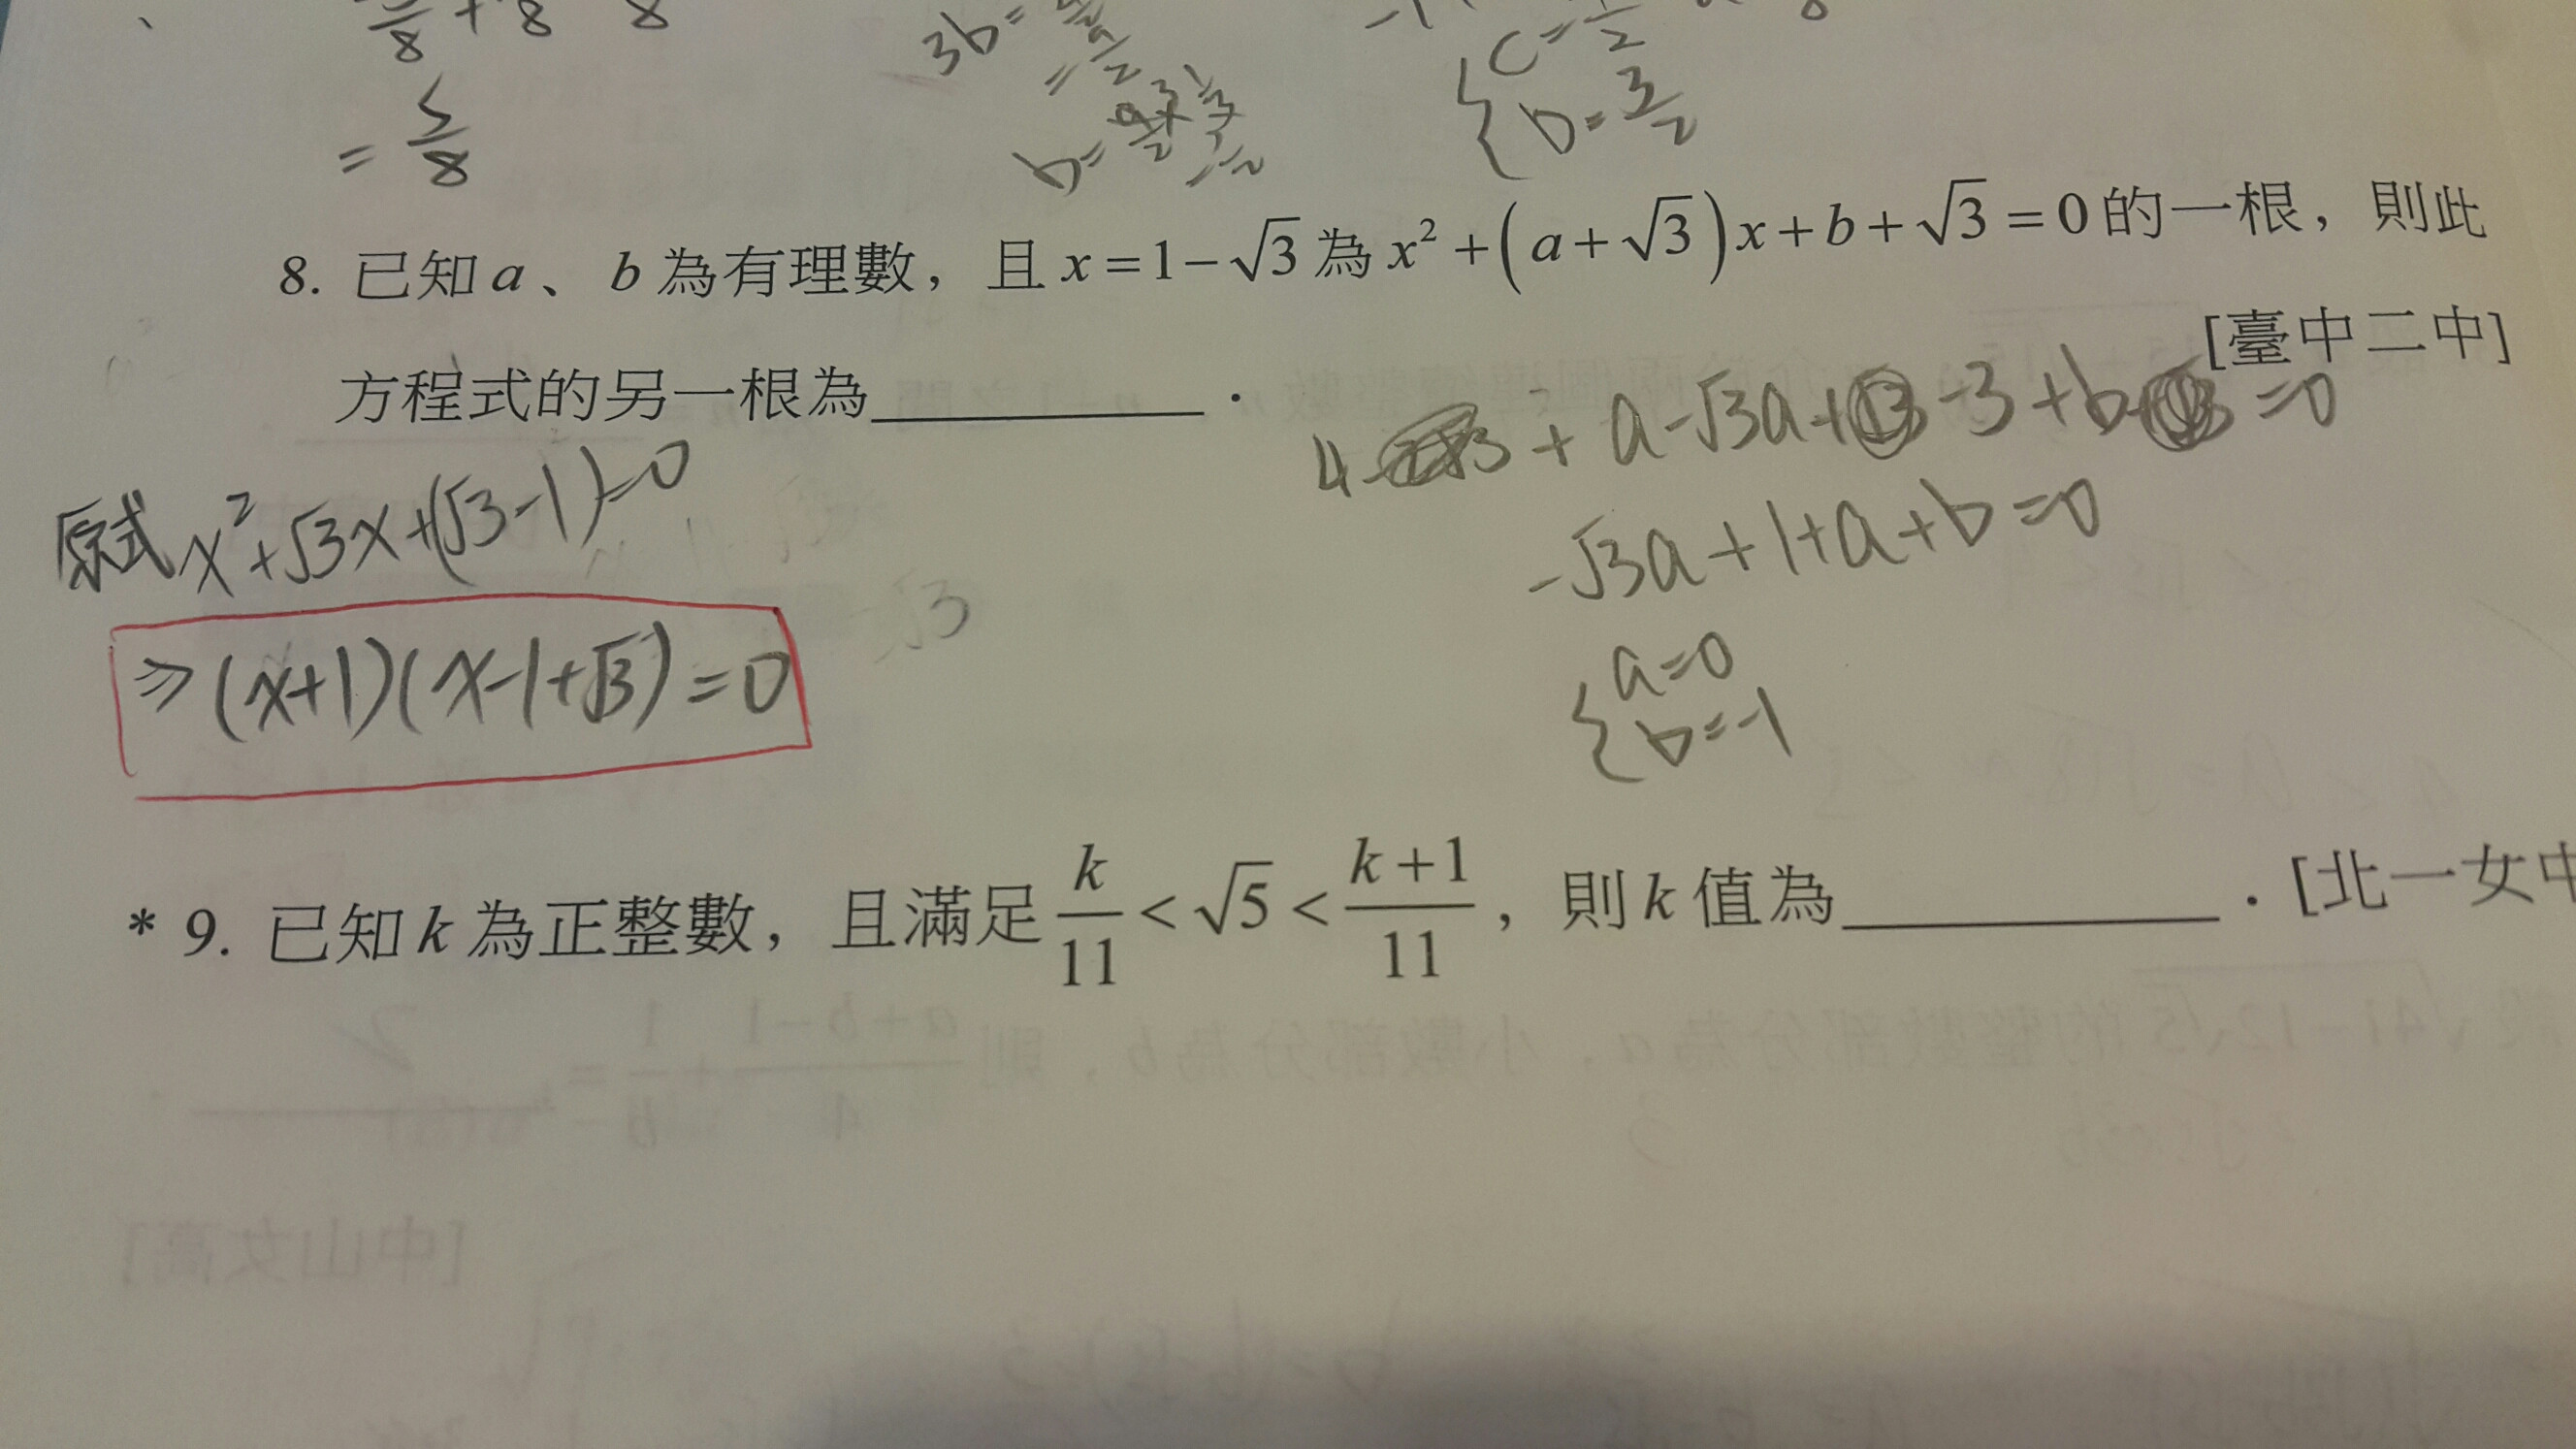 = 5/8
3b =
b =
c =
b = 3/2
8. 已知 a、b 為有理數，且 x = 1 − √3 為 x² + (a + √3)x + b + √3 = 0 的一根，則此
方程式的另一根為________．
[臺中二中]
4 + a - √3a + - 3 + b = 0
-√3a + 1 + a + b = 0
a = 0
b = -1
原式 x² + √3x + (√3 - 1) = 0
⇒ (x+1)(x-1+√3) = 0
* 9. 已知 k 為正整數，且滿足 k/11 < √5 < (k+1)/11，則 k 值為________．[北一女中